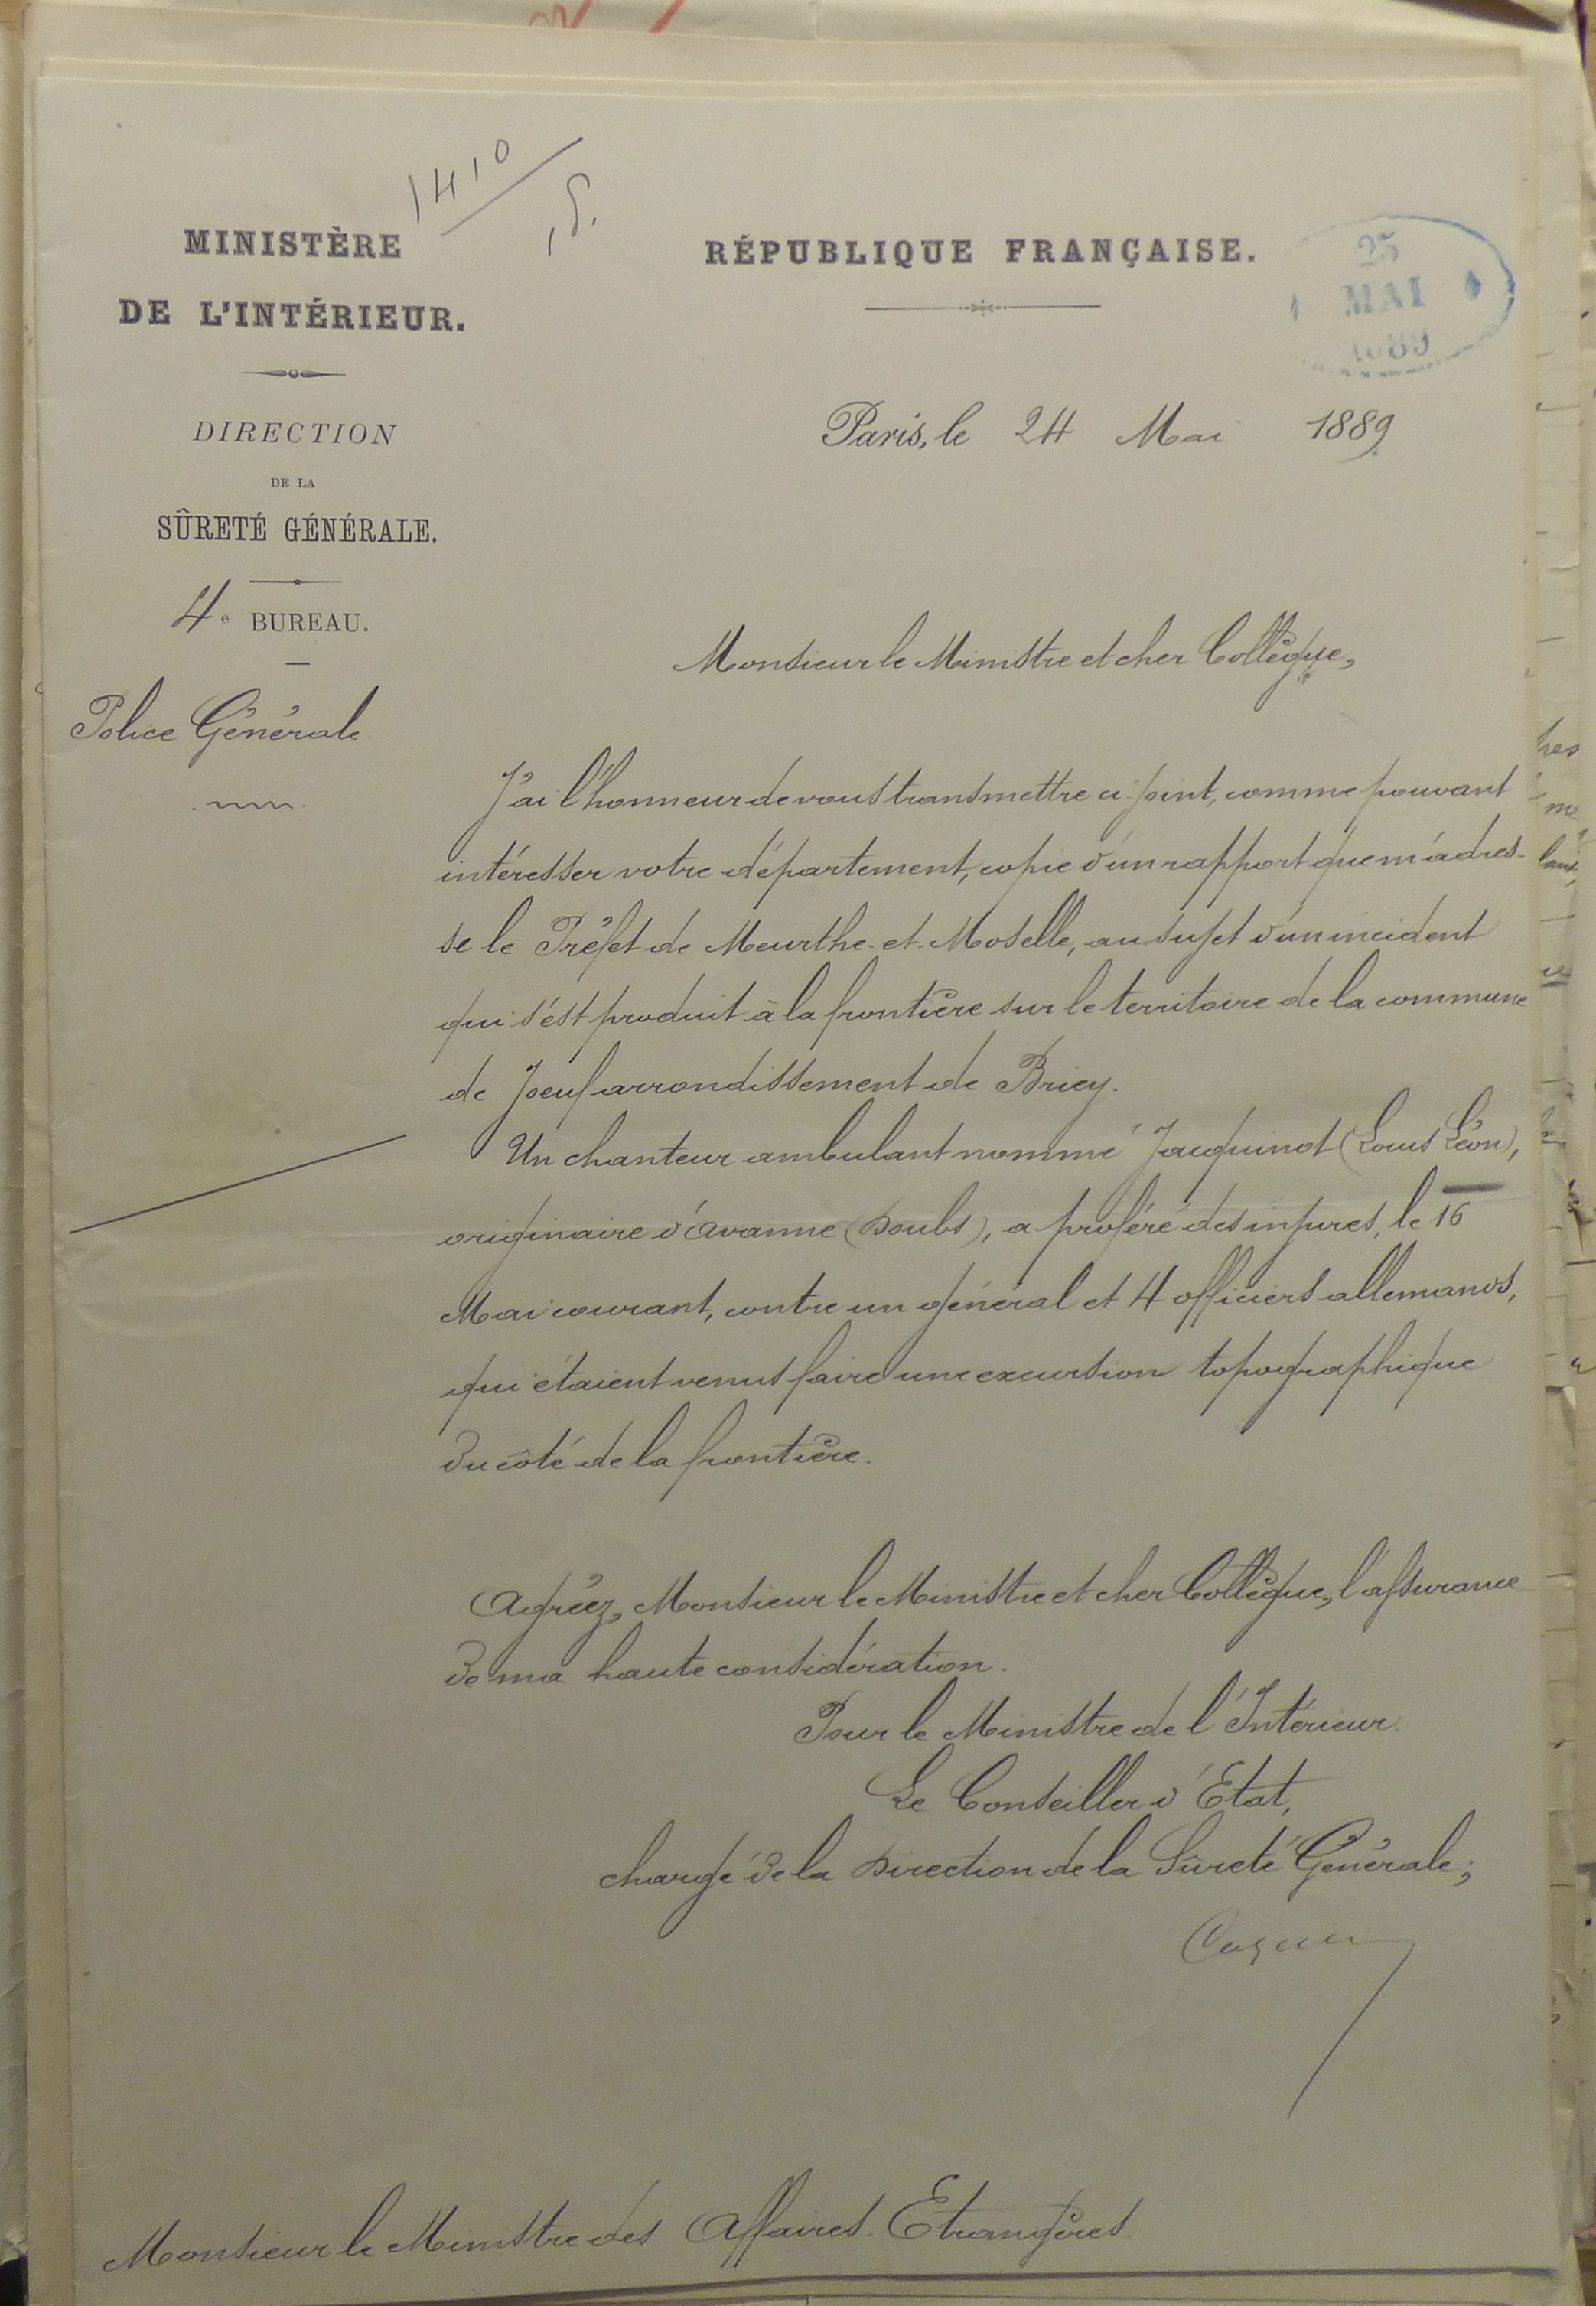 1410
MINISTÈRE
DE L'INTÉRIEUR.
DIRECTION
DE LA
SÛRETÉ GÉNÉRALE.
4e BUREAU.
Police Générale
RÉPUBLIQUE FRANÇAISE.
25
MAI
1889
Paris, le 24 Mai 1889
Monsieur le Ministre et cher Collègue,
J'ai l'honneur de vous transmettre ci-joint, comme pouvant
intéresser votre département, copie d'un rapport que m'adres-
se le Préfet de Meurthe-et-Moselle, au sujet d'un incident
qui s'est produit à la frontière sur le territoire de la commune
de Joeuf arrondissement de Briey.
Un chanteur ambulant nommé Jacquinot (Louis Léon),
originaire d'Avanne (Doubs), a proféré des injures, le 16
Mai courant, contre un général et 4 officiers allemands,
qui étaient venus faire une excursion topographique
du côté de la frontière.
Agréez, Monsieur le Ministre et cher Collègue, l'assurance
de ma haute considération.
Pour le Ministre de l'Intérieur.
Le Conseiller d'Etat,
chargé de la Direction de la Sûreté Générale;
Monsieur le Ministre des Affaires Etrangères